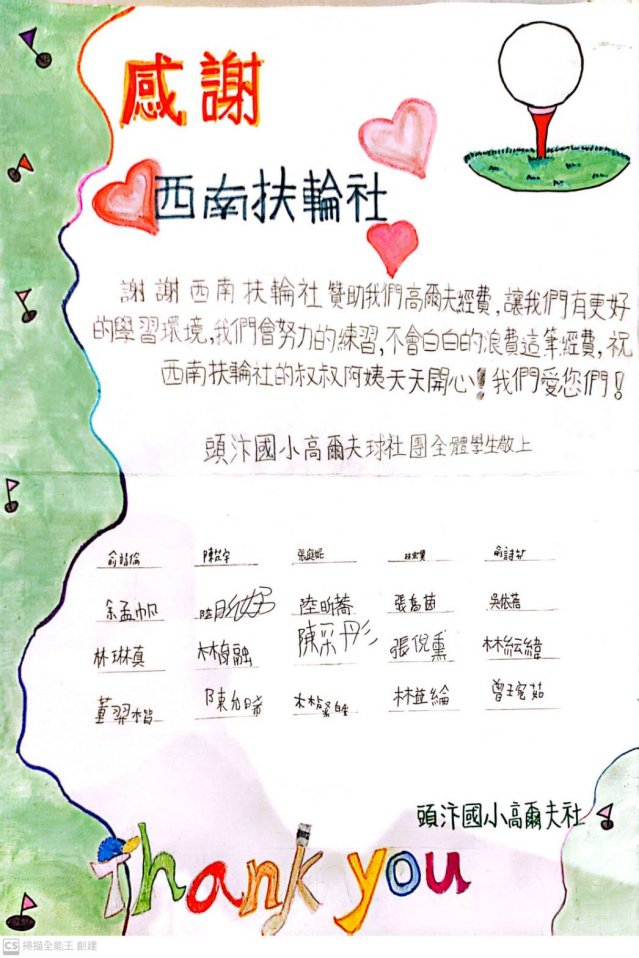 感謝
西南扶輪社
謝謝西南扶輪社贊助我們高爾夫經費,讓我們有更好
的學習環境,我們會努力的練習,不會白白的浪費這筆經費,祝
西南扶輪社的叔叔阿姨天天開心!我們愛您們!
頭汴國小高爾夫球社團全體學生敬上
余孟帆 陸昕妤 陸昕蕎
林琳真 陳采彤 張倪熏 林紜緯
頭汴國小高爾夫社
Thank you
CS 掃描全能王 創建